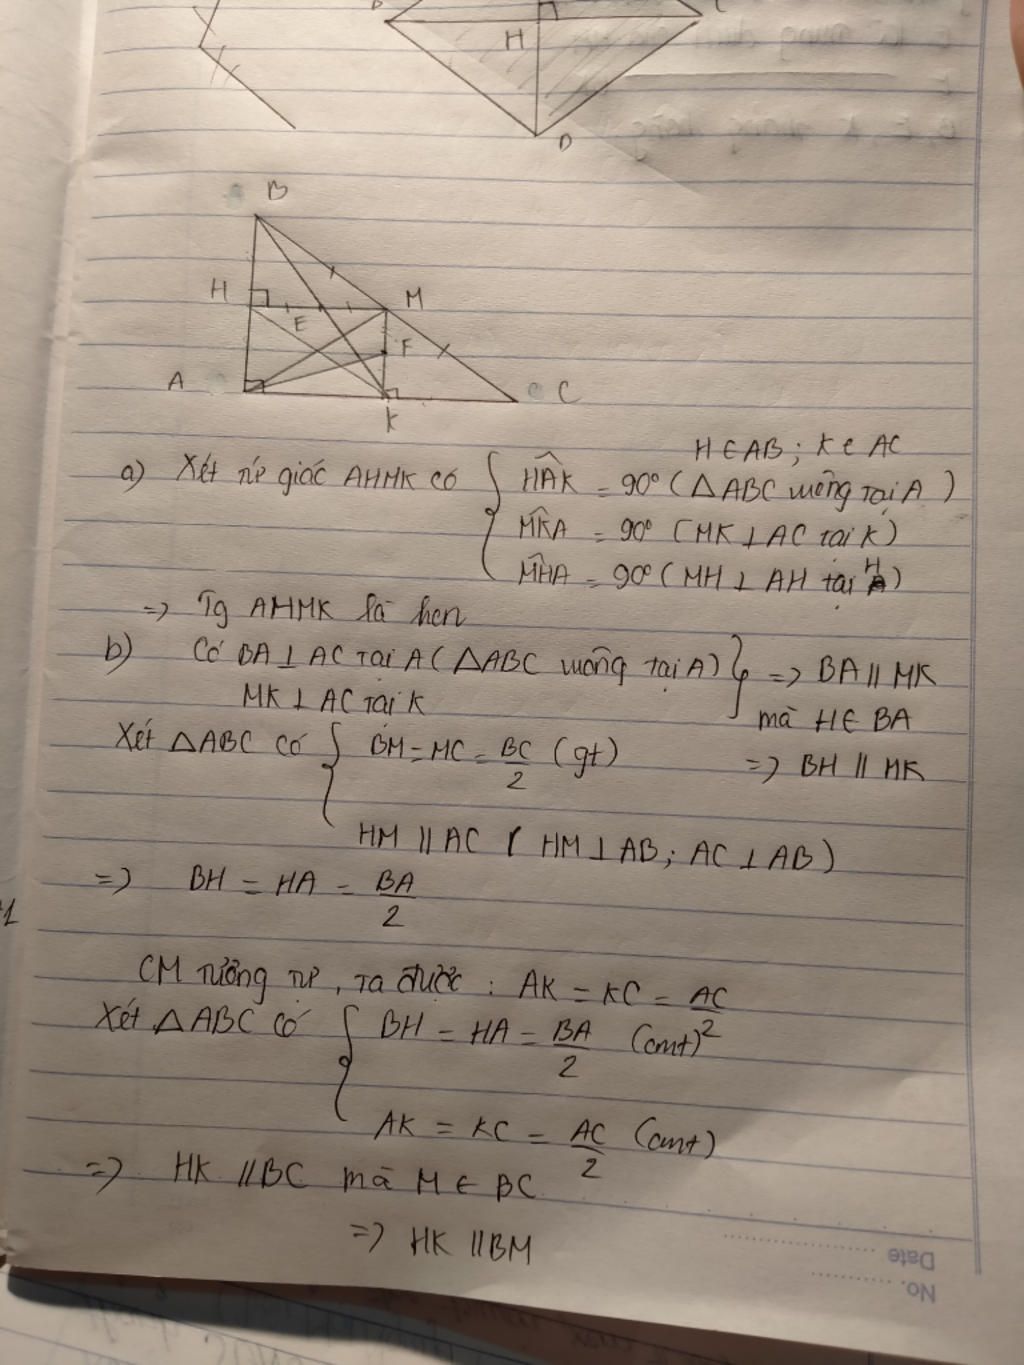 H
D
B
H
M
E
F
A
C
K
H ∈ AB ; K ∈ AC
a) Xét tứ giác AHMK có { HÂK = 90° ( △ABC vuông tại A )
MK̂A = 90° ( MK ⊥ AC tại K )
MĤA = 90° ( MH ⊥ AH tại H )
=> Tg AHMK là hcn
b) Có BA ⊥ AC tại A ( △ABC vuông tại A ) } => BA // MK
MK ⊥ AC tại K
mà H ∈ BA
Xét △ABC có { BM = MC = BC/2 (gt)
=> BH // MK
HM // AC ( HM ⊥ AB ; AC ⊥ AB )
=> BH = HA = BA/2
CM tương tự , ta được : AK = KC = AC/2
Xét △ABC có { BH = HA = BA/2 (cmt)
AK = KC = AC/2 (cmt)
=> HK // BC mà M ∈ BC
=> HK // BM
Date
No.